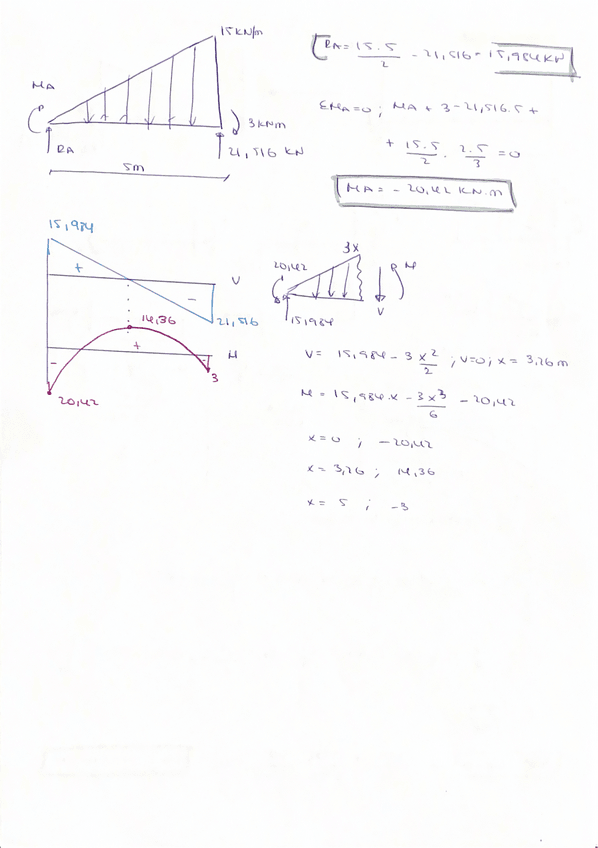 15 KN/m
MA
P
RA
3 KNm
21,516 KN
5m
RA = 15.5/2 - 21,516 = 15,984 KN
ΣMA=0 ; MA + 3 - 21,516.5 +
+ 15.5/2 . 2.5/3 = 0
MA = - 20,42 KN.m
15,984
+
V
-
21,516
14,36
+
M
-
-
3
20,42
3x
20,42
M
15,984
V
V = 15,984 - 3x²/2 ; V=0 ; x = 3,26 m
M = 15,984.x - 3x³/6 - 20,42
x=0 ; -20,42
x= 3,26 ; 14,36
x= 5 ; -3